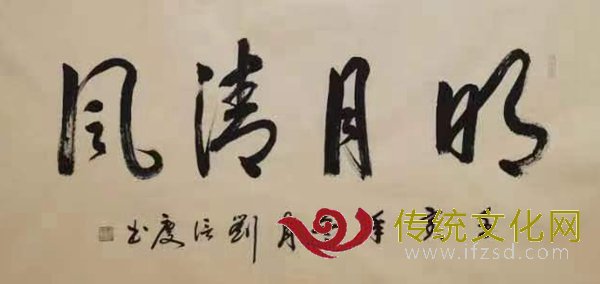 明月清風
年 月 劉 度 书
传统文化网
www.ifzsd.com